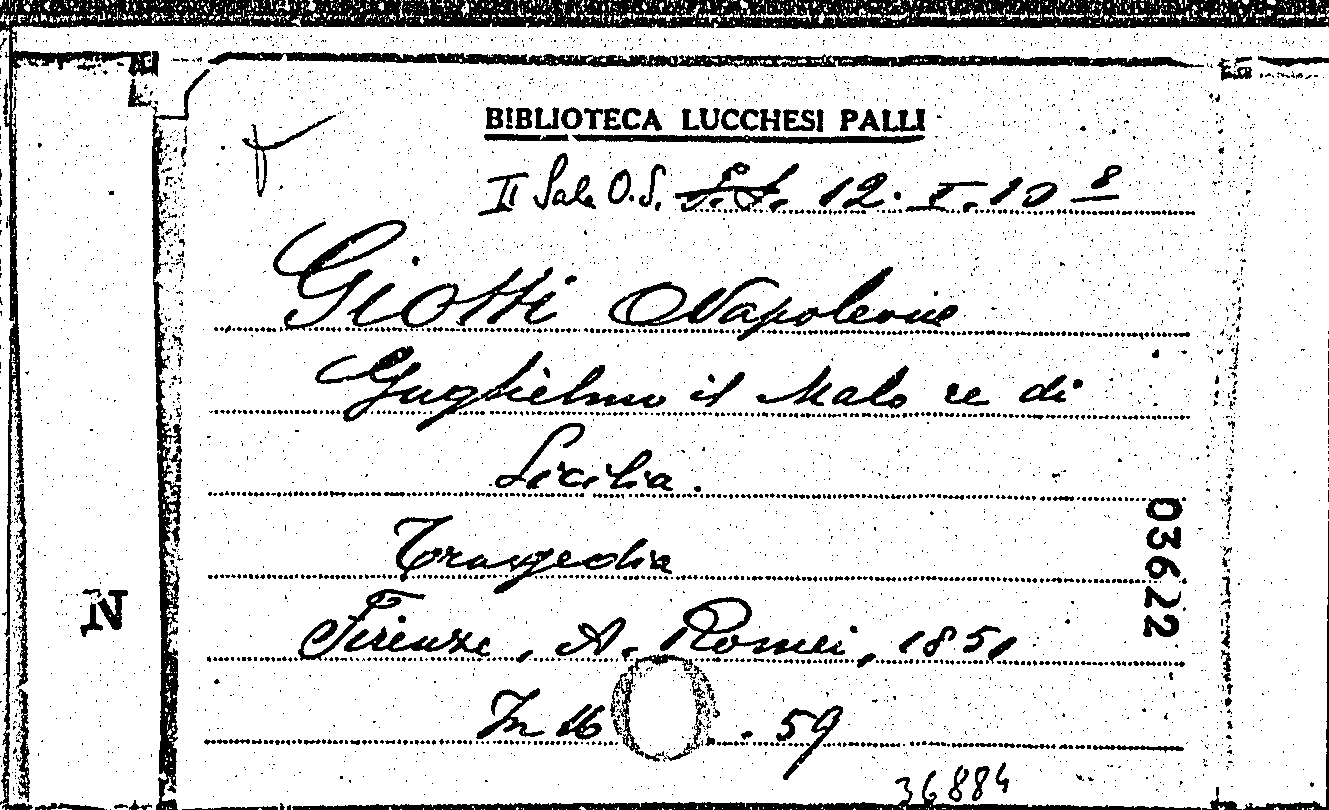 BIBLIOTECA LUCCHESI PALLI
II Sala O.S. 12. I. 10 8
Giotti Napoleone
Guglielmo il Malo re di
Sicilia.
Tragedia
03622
N
Firenze, A. Romei, 1851
In 16 . 59
36884